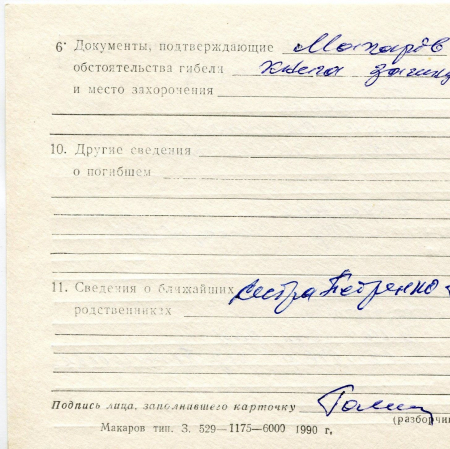 6· Документы, подтверждающие Макарев
обстоятельства гибели книга
и место захоронения
10. Другие сведения
о погибшем
11. Сведения о ближайших сестра Петренко
родственниках
Подпись лица, заполнившего карточку
(разборчи
Макаров тип. З. 529—1175—6000 1990 г,